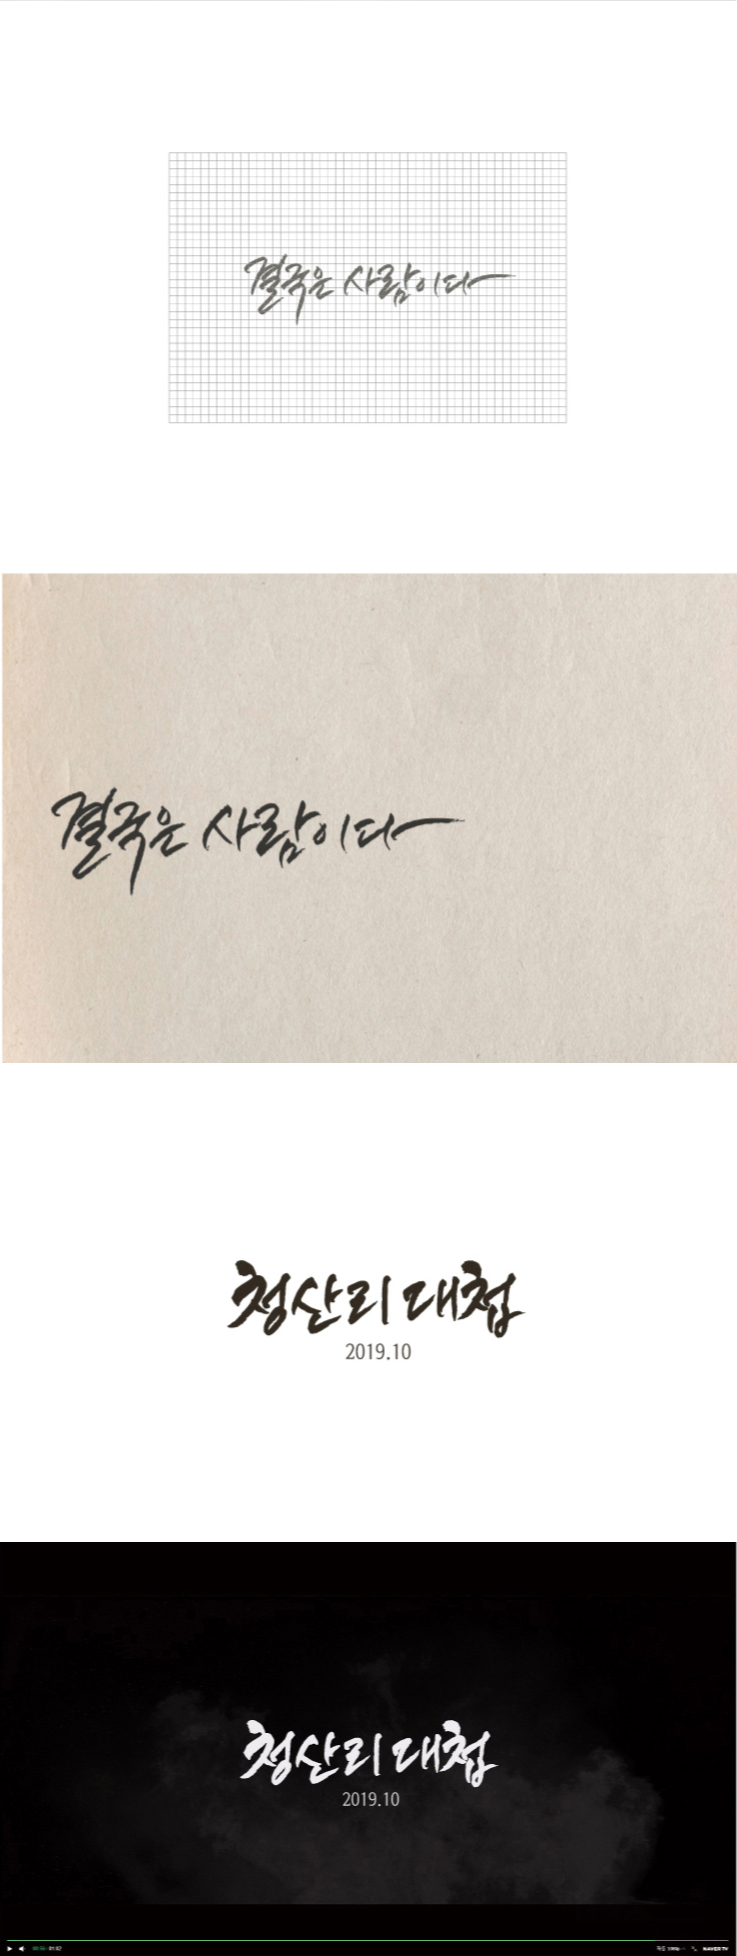 결국은 사람이다
결국은 사람이다
청산리 대첩
2019.10
청산리 대첩
2019.10
NAVER TV